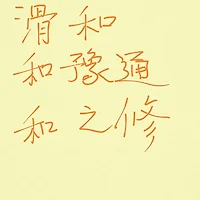 滑和
和豫通
和之修